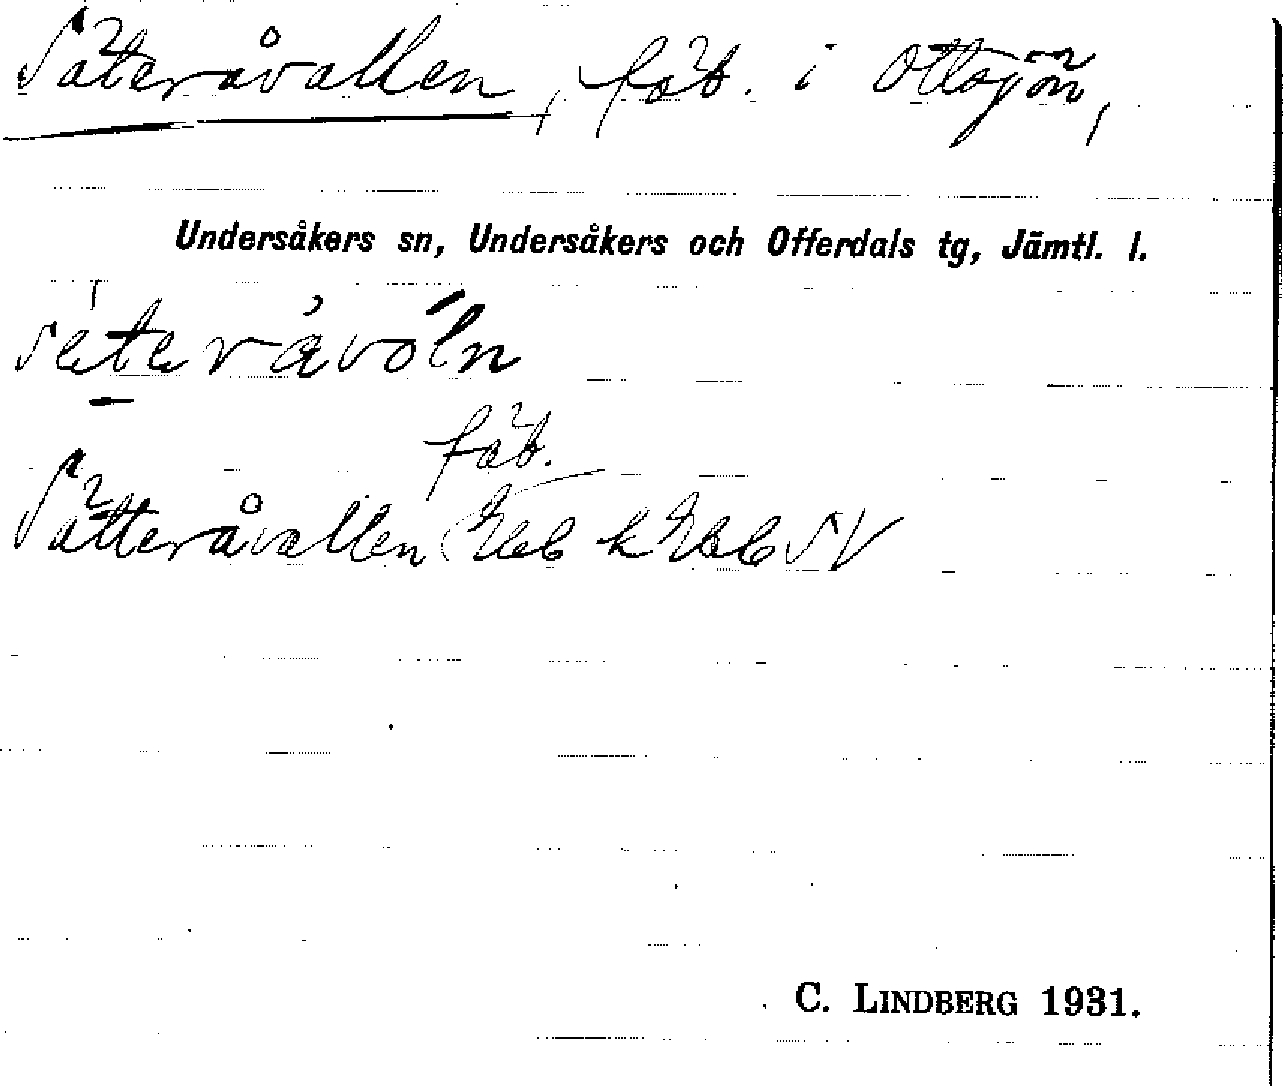 Säteråvallen, fäb. i Ottsjön,
Undersåkers sn, Undersåkers och Offerdals tg, Jämtl. l.
fäb.
Sätteråvallen
C. LINDBERG 1931.